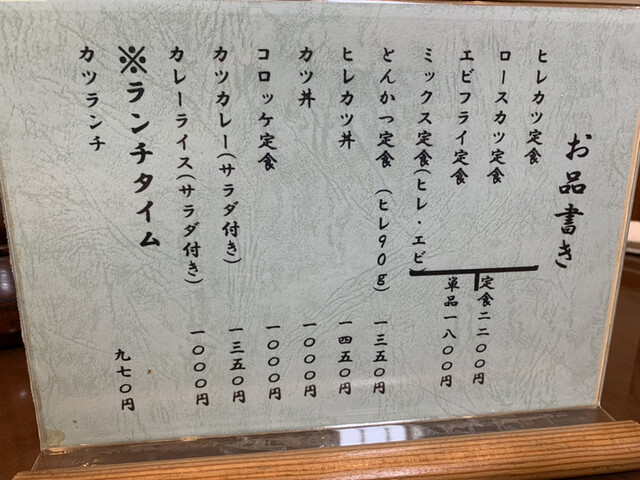 お品書き
ヒレカツ定食
ロースカツ定食
エビフライ定食
ミックス定食(ヒレ・エビ)
定食二二〇〇円
単品一八〇〇円
とんかつ定食(ヒレ90g) 一三五〇円
ヒレカツ丼 一四五〇円
カツ丼 一〇〇〇円
コロッケ定食 一〇〇〇円
カツカレー(サラダ付き) 一三五〇円
カレーライス(サラダ付き) 一〇〇〇円
※ランチタイム
カツランチ 九七〇円